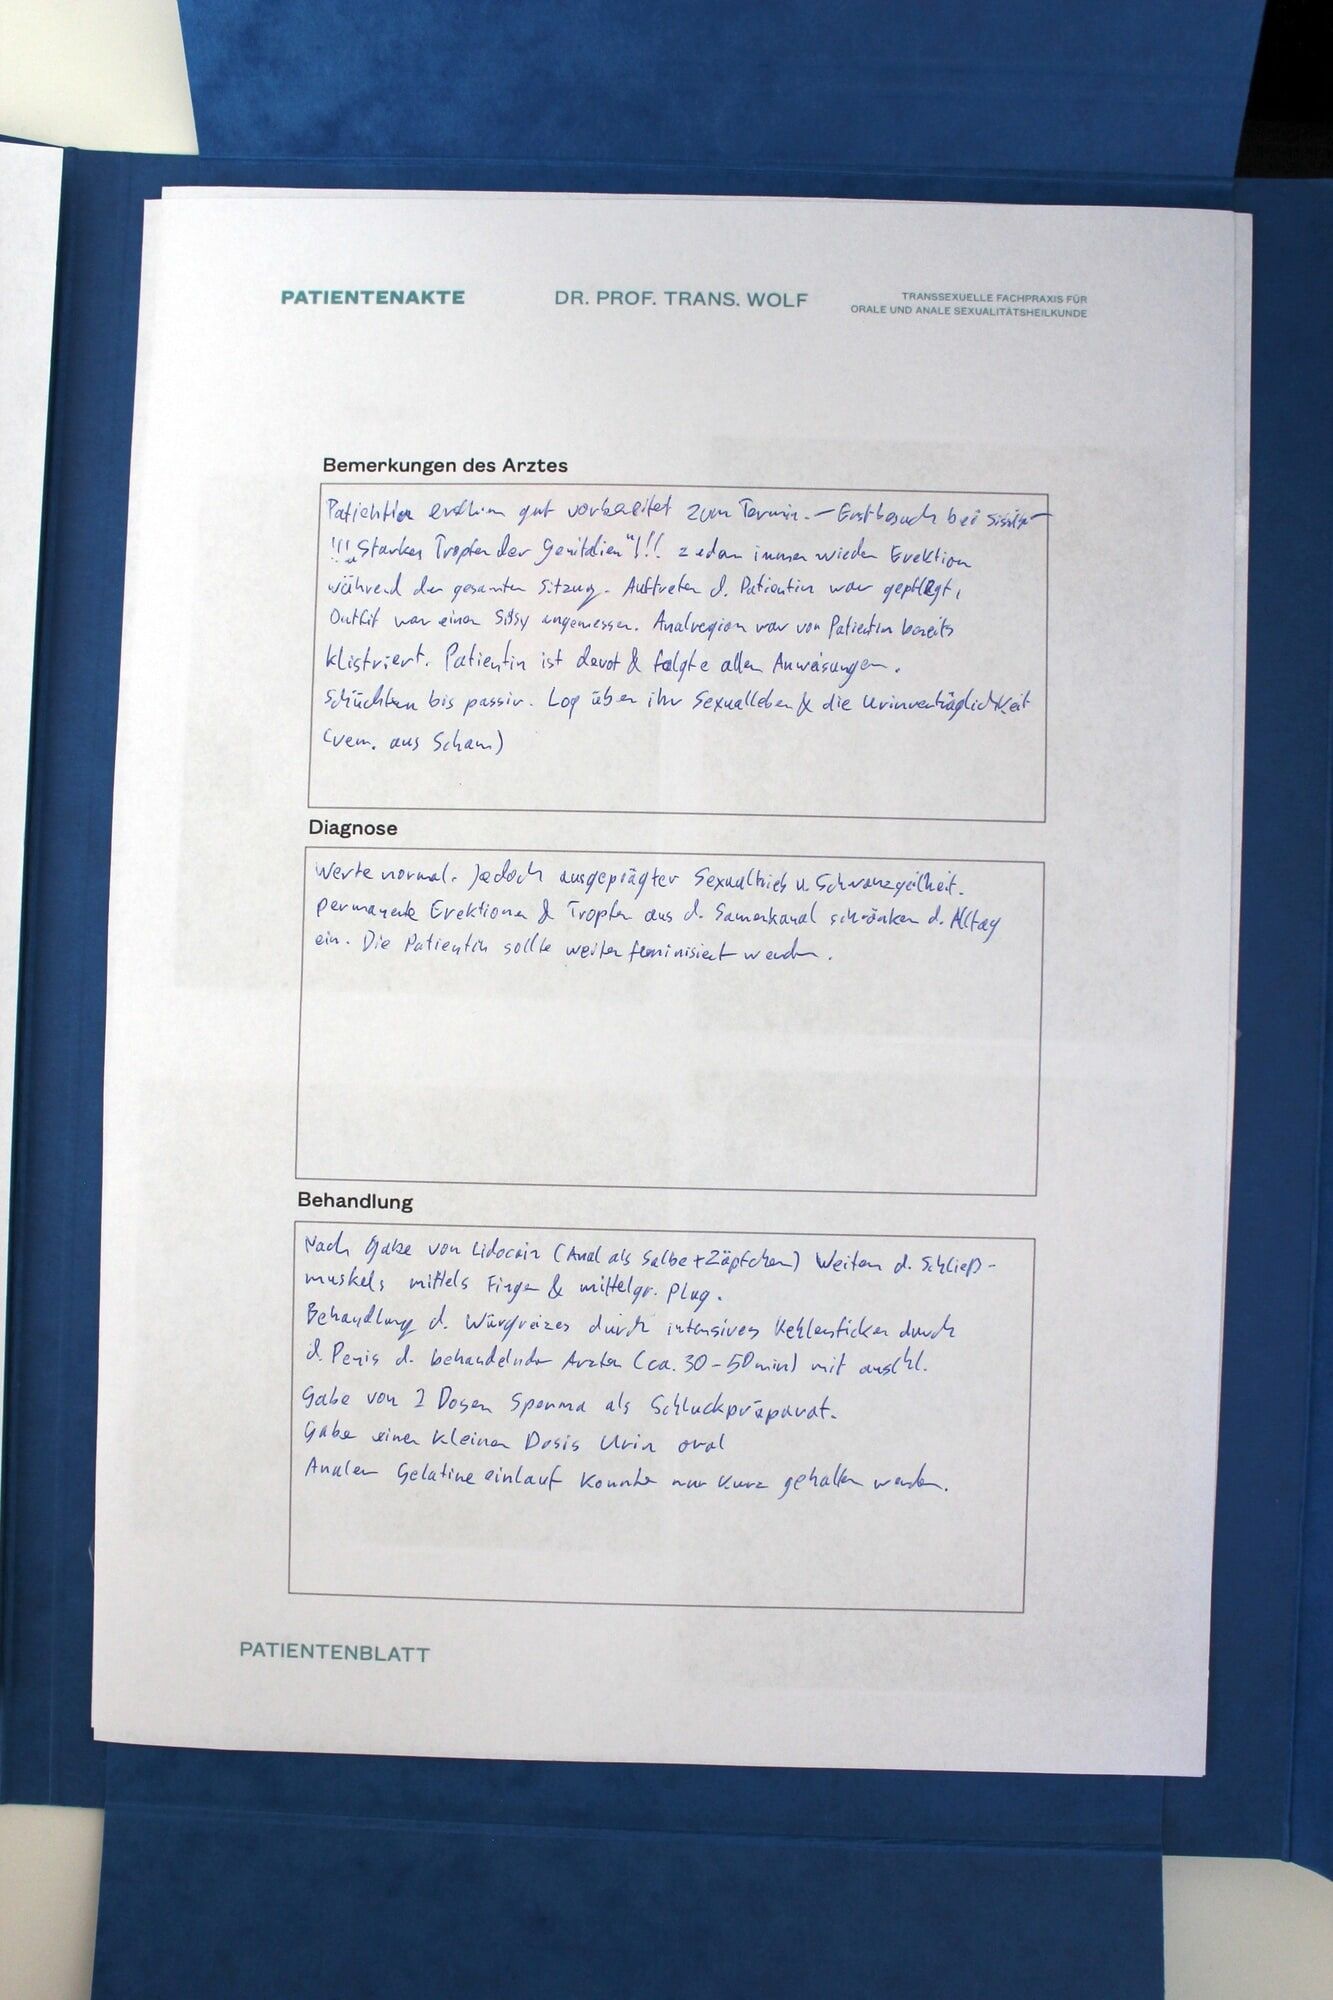 PATIENTENAKTE DR. PROF. TRANS. WOLF TRANSSEXUELLE FACHPRAXIS FÜR
ORALE UND ANALE SEXUALITÄTSHEILKUNDE
Bemerkungen des Arztes
Patientin erschien gut vorbereitet zum Termin. – Erstbesuch bei
!!! "Starkes Tropfen der Genitalien" !!! immer wieder Erektion
während der gesamten Sitzung. Auftreten d. Patientin war gepflegt,
Outfit war einer Sissy angemessen. Analregion war von Patientin bereits
klistriert. Patientin ist devot & folgte allen Anweisungen.
Schüchtern bis passiv. Log über ihr Sexualleben & die Urinverträglichkeit
(verm. aus Scham)
Diagnose
Werte normal. Jedoch ausgeprägter Sexualtrieb u. Schwanzgeilheit.
permanente Erektionen & Tropfen aus d. Samenkanal schränken d. Alltag
ein. Die Patientin sollte weiter feminisiert werden.
Behandlung
Nach Gabe von Lidocain (Anal als Salbe + Zäpfchen) Weiten d. Schließ-
muskels mittels Finger & mittelgr. Plug.
Behandlung d. Würgreizes durch intensives Kehlenficken durch
d. Penis d. behandelnden (ca. 30-50min) mit anschl.
Gabe von 2 Dosen Sperma als Schluckpräparat.
Gabe einer kleinen Dosis Urin oral
Analer Gelatineeinlauf konnte nur kurz gehalten werden.
PATIENTENBLATT